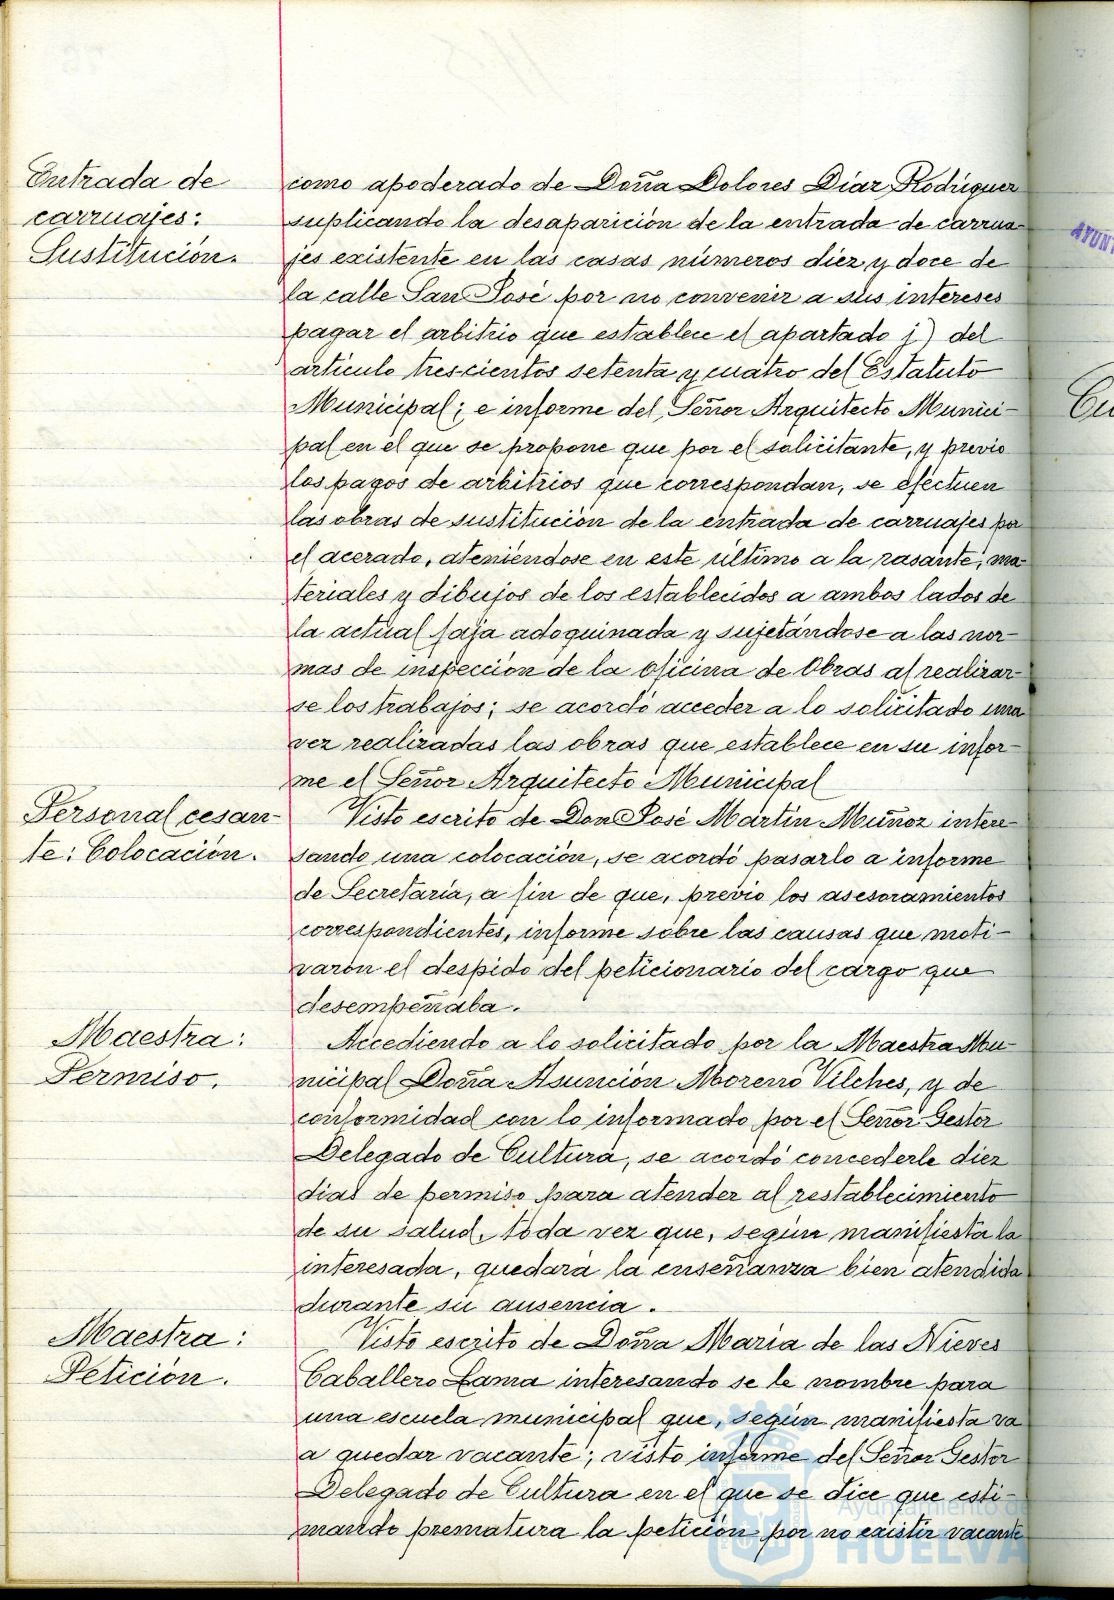 Entrada de
carruajes:
Sustitución.
como apoderado de Doña Dolores Díaz Rodríguez
suplicando la desaparición de la entrada de carrua-
jes existente en las casas números diez y doce de
la calle San José por no convenir a sus intereses
pagar el arbitrio que establece el apartado j) del
artículo trescientos setenta y cuatro del Estatuto
Municipal; e informe del Señor Arquitecto Munici-
pal en el que se propone que por el solicitante, y previo
los pagos de arbitrios que correspondan, se efectuen
las obras de sustitución de la entrada de carruajes por
el acerado, ateniéndose en este último a la rasante, ma-
teriales y dibujos de los establecidos a ambos lados de
la actual faja adoquinada y sujetándose a las nor-
mas de inspección de la oficina de Obras al realizar-
se los trabajos; se acordó acceder a lo solicitado una
vez realizadas las obras que establece en su infor-
me el Señor Arquitecto Municipal
Personal cesan-
te: Colocación.
Visto escrito de Don José Martín Muñoz intere-
sando una colocación, se acordó pasarlo a informe
de Secretaría, a fin de que, previo los asesoramientos
correspondientes, informe sobre las causas que moti-
varon el despido del peticionario del cargo que
desempeñaba.
Maestra:
Permiso.
Accediendo a lo solicitado por la Maestra Mu-
nicipal Doña Asunción Moreno Vilches, y de
conformidad con lo informado por el Señor Gestor
Delegado de Cultura, se acordó concederle diez
dias de permiso para atender al restablecimiento
de su salud, toda vez que, según manifiesta la
interesada, quedará la enseñanza bien atendida
durante su ausencia.
Maestra:
Petición.
Visto escrito de Doña María de las Nieves
Caballero Lama interesando se le nombre para
una escuela municipal que, según manifiesta va
a quedar vacante; visto informe del Señor Gestor
Delegado de Cultura en el que se dice que esti-
mando prematura la petición por no existir vacante
Ayuntamiento de
HUELVA
AYUNT